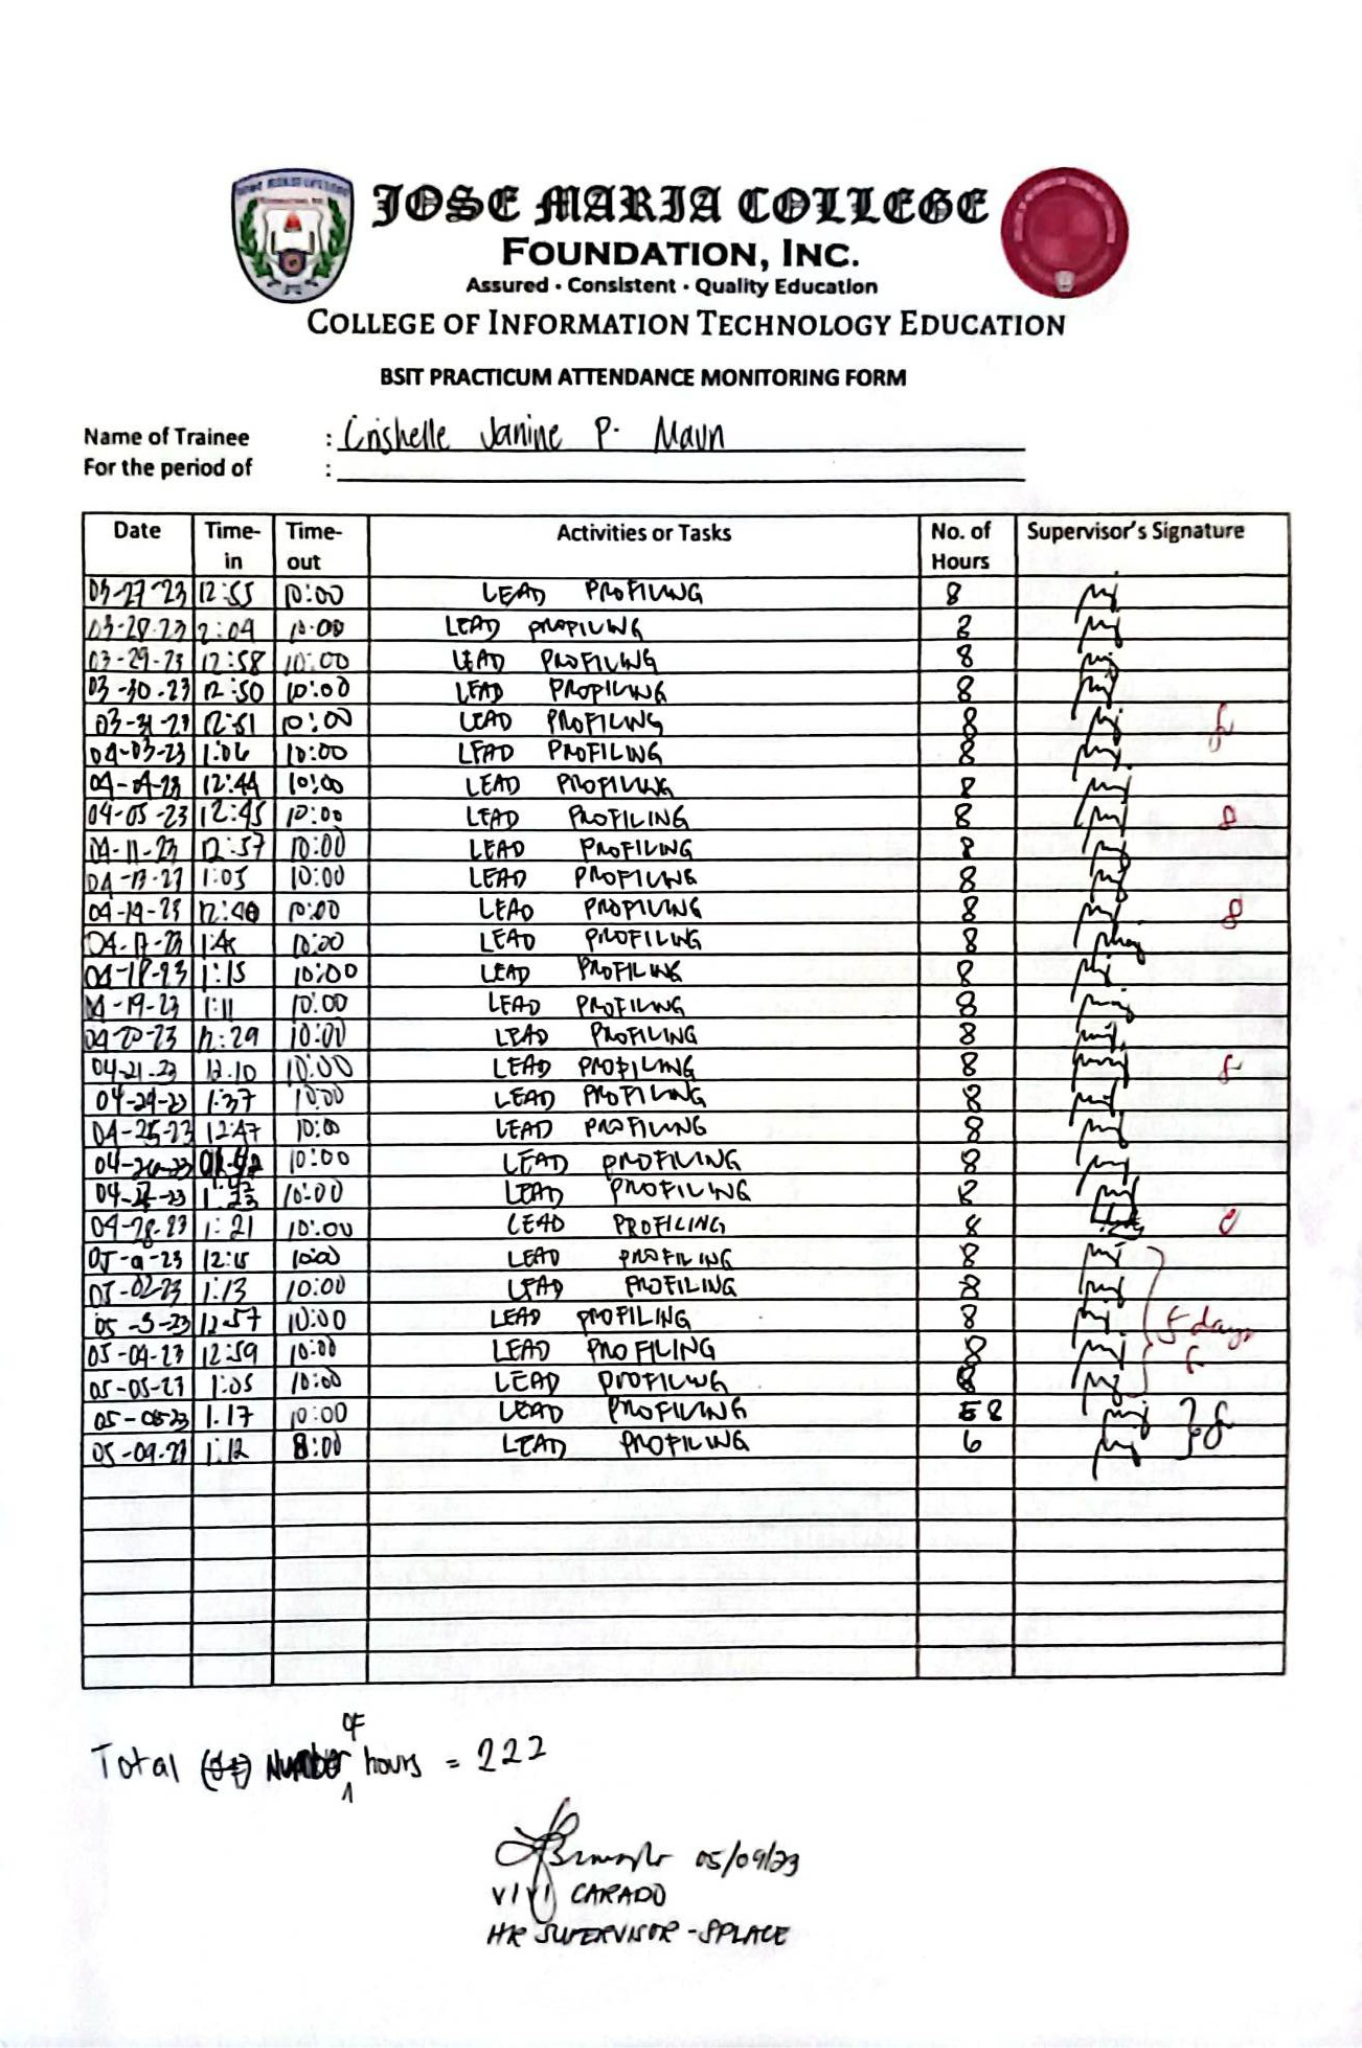 JOSE MARIA COLLEGE
FOUNDATION, INC.
Assured · Consistent · Quality Education
COLLEGE OF INFORMATION TECHNOLOGY EDUCATION
BSIT PRACTICUM ATTENDANCE MONITORING FORM
Name of Trainee : Crishelle Janine P.
For the period of :
Date Time-in Time-out Activities or Tasks No. of Hours Supervisor's Signature
03-27-23 12:55 10:00 LEAD PROFILING 8
03-28-23 2:04 10:00 LEAD PROFILING 8
03-29-23 12:58 10:00 LEAD PROFILING 8
03-30-23 12:50 10:00 LEAD PROFILING 8
03-31-23 12:51 10:00 LEAD PROFILING 8
04-03-23 1:06 10:00 LEAD PROFILING 8
04-04-23 12:44 10:00 LEAD PROFILING 8
04-05-23 12:45 10:00 LEAD PROFILING 8
04-11-23 12:57 10:00 LEAD PROFILING 8
04-13-23 1:05 10:00 LEAD PROFILING 8
04-14-23 10:00 LEAD PROFILING 8
04-17-23 10:00 LEAD PROFILING 8
04-18-23 1:15 10:00 LEAD PROFILING 8
04-19-23 1:11 10:00 LEAD PROFILING 8
04-20-23 12:29 10:00 LEAD PROFILING 8
04-21-23 12:10 10:00 LEAD PROFILING 8
04-24-23 1:37 10:00 LEAD PROFILING 8
04-25-23 12:47 10:00 LEAD PROFILING 8
04-26-23 10:00 LEAD PROFILING 8
10:00 LEAD PROFILING 8
04-28-23 1:21 10:00 LEAD PROFILING 8
12:15 10:00 LEAD PROFILING 8
05-02-23 1:13 10:00 LEAD PROFILING 8
05-3-23 12:57 10:00 LEAD PROFILING 8
5 days
05-04-23 12:59 10:00 LEAD PROFILING 8
05-05-23 1:05 10:00 LEAD PROFILING 8
05-08-23 1:17 10:00 LEAD PROFILING 8
05-09-23 1:12 8:00 LEAD PROFILING 6
Total Number of hours = 222
05/09/23
VIVI CARADO
HR SUPERVISOR - SPLACE